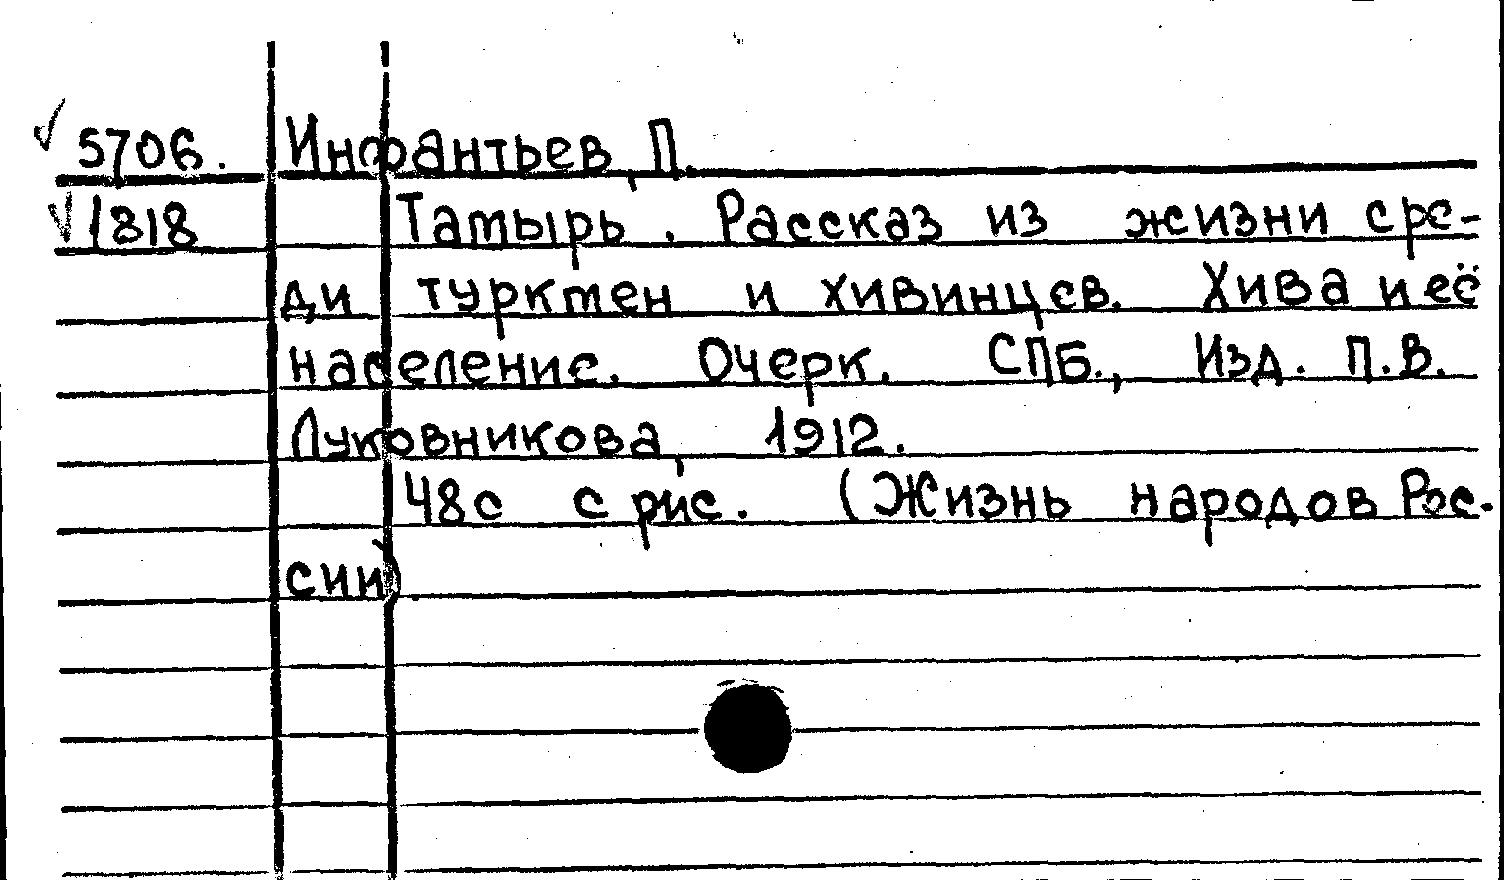 5706. Инфантьев, П.
1818 Тамырь. Рассказ из жизни сре-
ди туркмен и хивинцев. Хива и её
население. Очерк. СПБ., Изд. П.В.
Луковникова, 1912.
48с с рис. (Жизнь народов Рос-
сии)